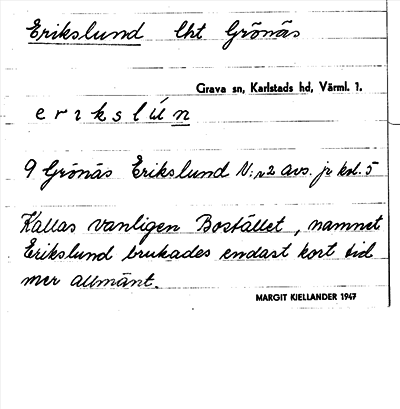 Erikslund lht Grönäs
Grava sn, Karlstads hd, Värml. 1.
e r ɩ k s l ú n
9 Grönäs Erikslund N:r 2 avs. jr kol. 5
Kallas vanligen Bostället, namnet
Erikslund brukades endast kort tid
mer allmänt.
MARGIT KJELLANDER 1947